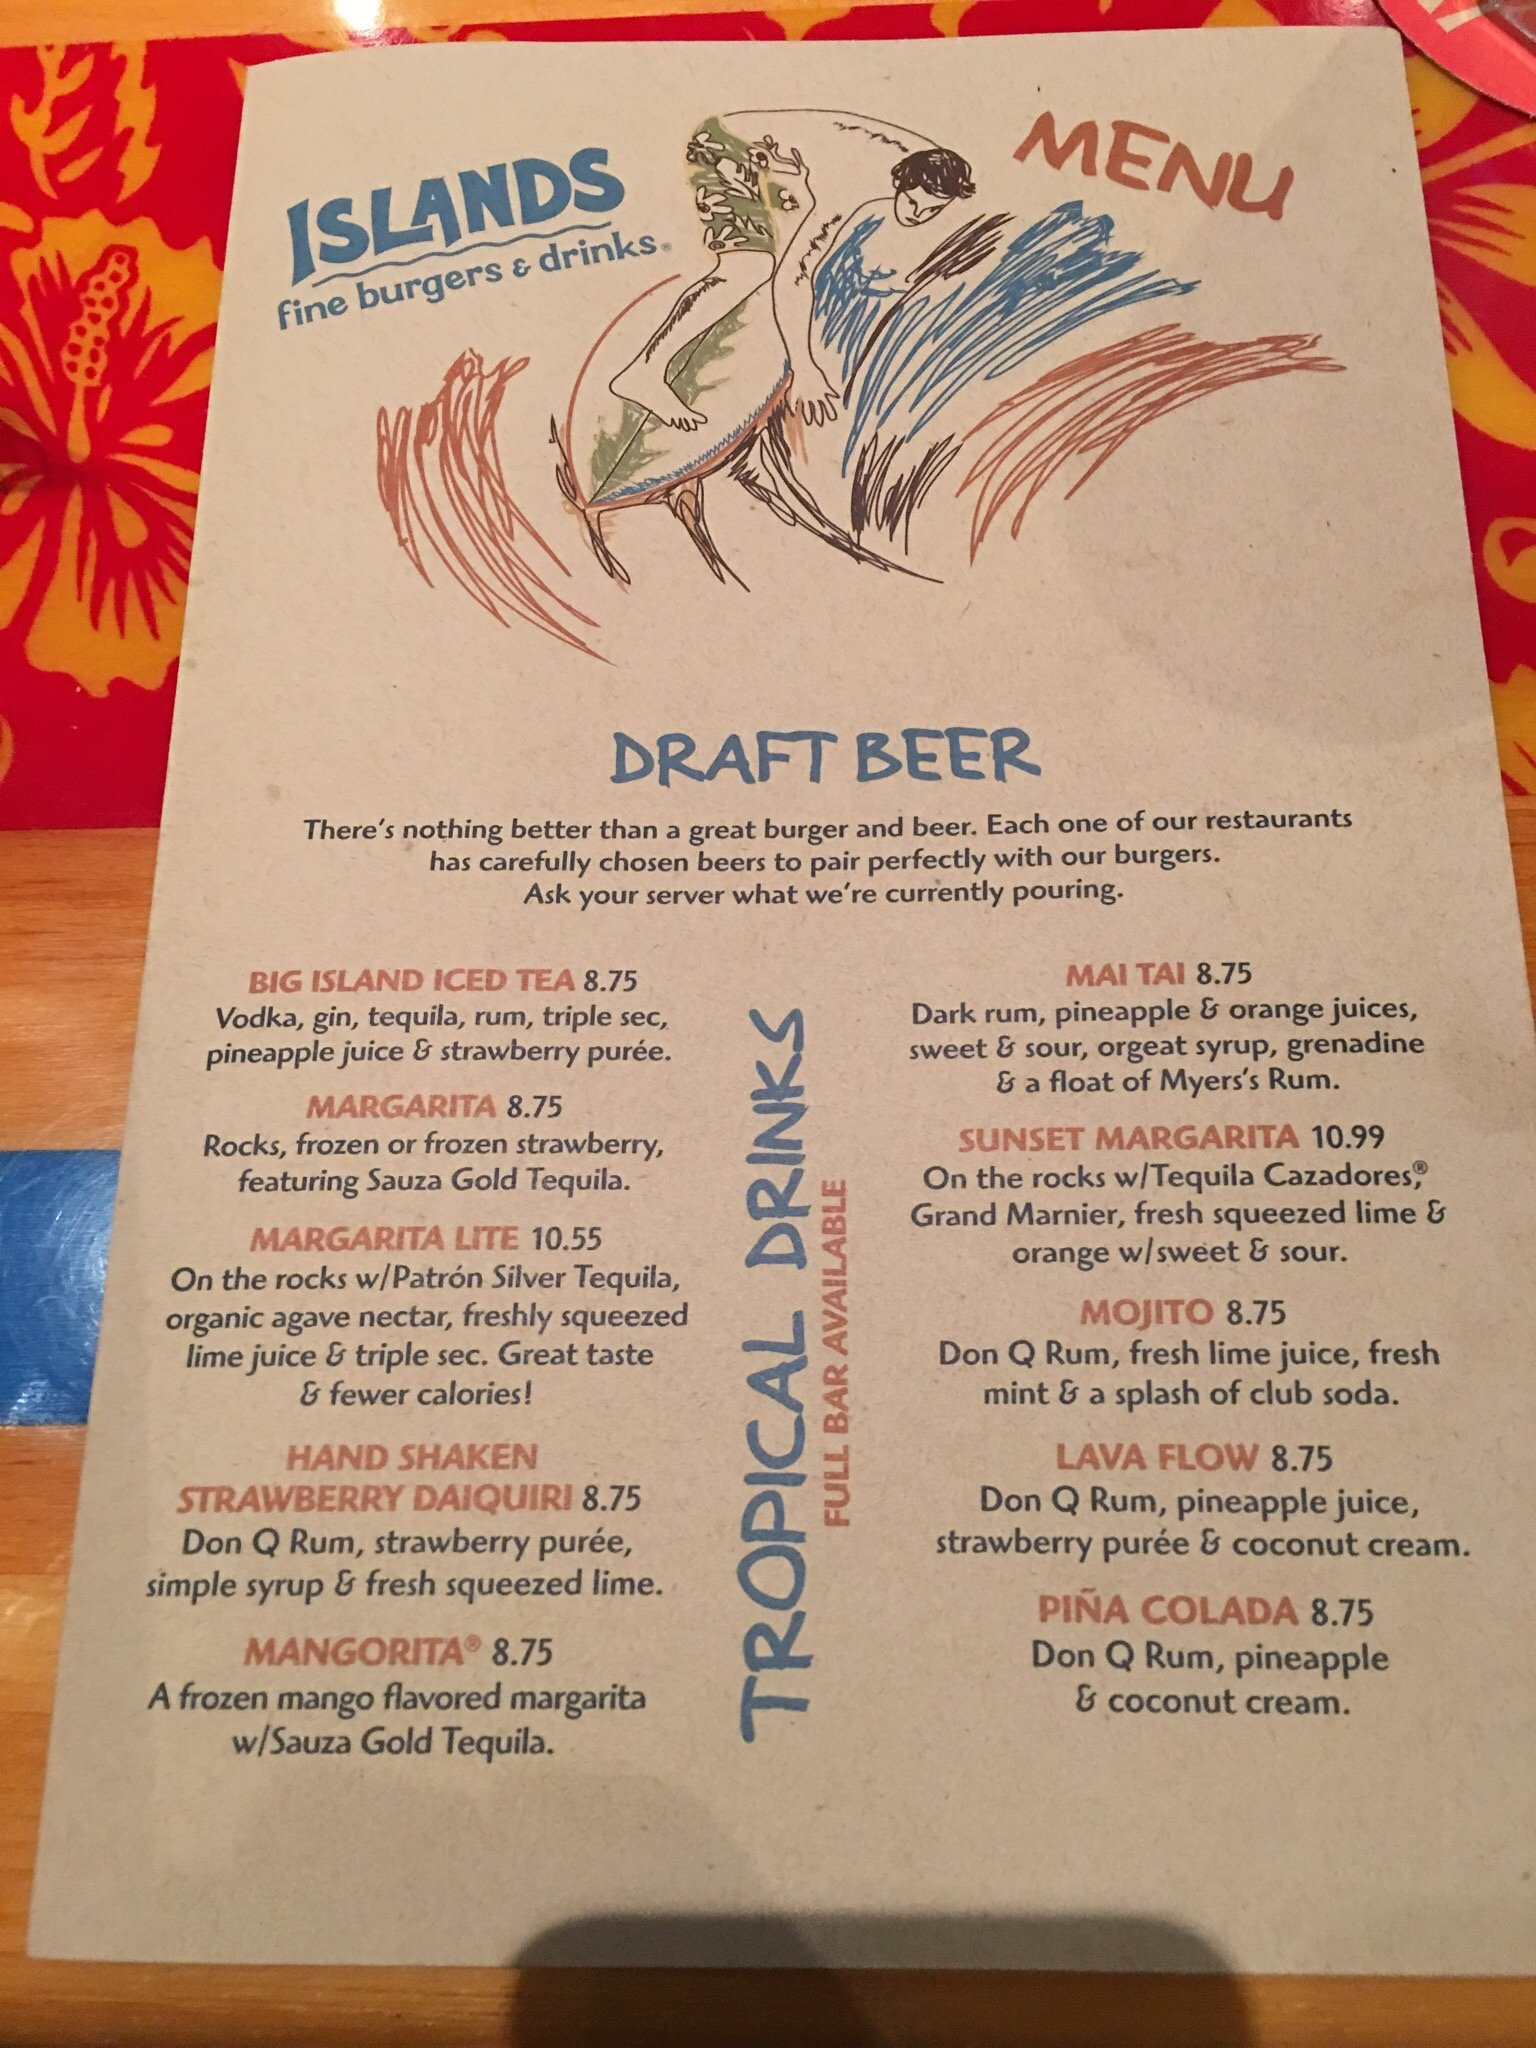 ISLANDS
fine burgers & drinks®
MENU
DRAFT BEER
There's nothing better than a great burger and beer. Each one of our restaurants
has carefully chosen beers to pair perfectly with our burgers.
Ask your server what we're currently pouring.
BIG ISLAND ICED TEA 8.75
Vodka, gin, tequila, rum, triple sec,
pineapple juice & strawberry purée.
MARGARITA 8.75
Rocks, frozen or frozen strawberry,
featuring Sauza Gold Tequila.
MARGARITA LITE 10.55
On the rocks w/Patrón Silver Tequila,
organic agave nectar, freshly squeezed
lime juice & triple sec. Great taste
& fewer calories!
HAND SHAKEN
STRAWBERRY DAIQUIRI 8.75
Don Q Rum, strawberry purée,
simple syrup & fresh squeezed lime.
MANGORITA® 8.75
A frozen mango flavored margarita
w/Sauza Gold Tequila.
TROPICAL DRINKS
FULL BAR AVAILABLE
MAI TAI 8.75
Dark rum, pineapple & orange juices,
sweet & sour, orgeat syrup, grenadine
& a float of Myers's Rum.
SUNSET MARGARITA 10.99
On the rocks w/Tequila Cazadores,®
Grand Marnier, fresh squeezed lime &
orange w/sweet & sour.
MOJITO 8.75
Don Q Rum, fresh lime juice, fresh
mint & a splash of club soda.
LAVA FLOW 8.75
Don Q Rum, pineapple juice,
strawberry purée & coconut cream.
PIÑA COLADA 8.75
Don Q Rum, pineapple
& coconut cream.